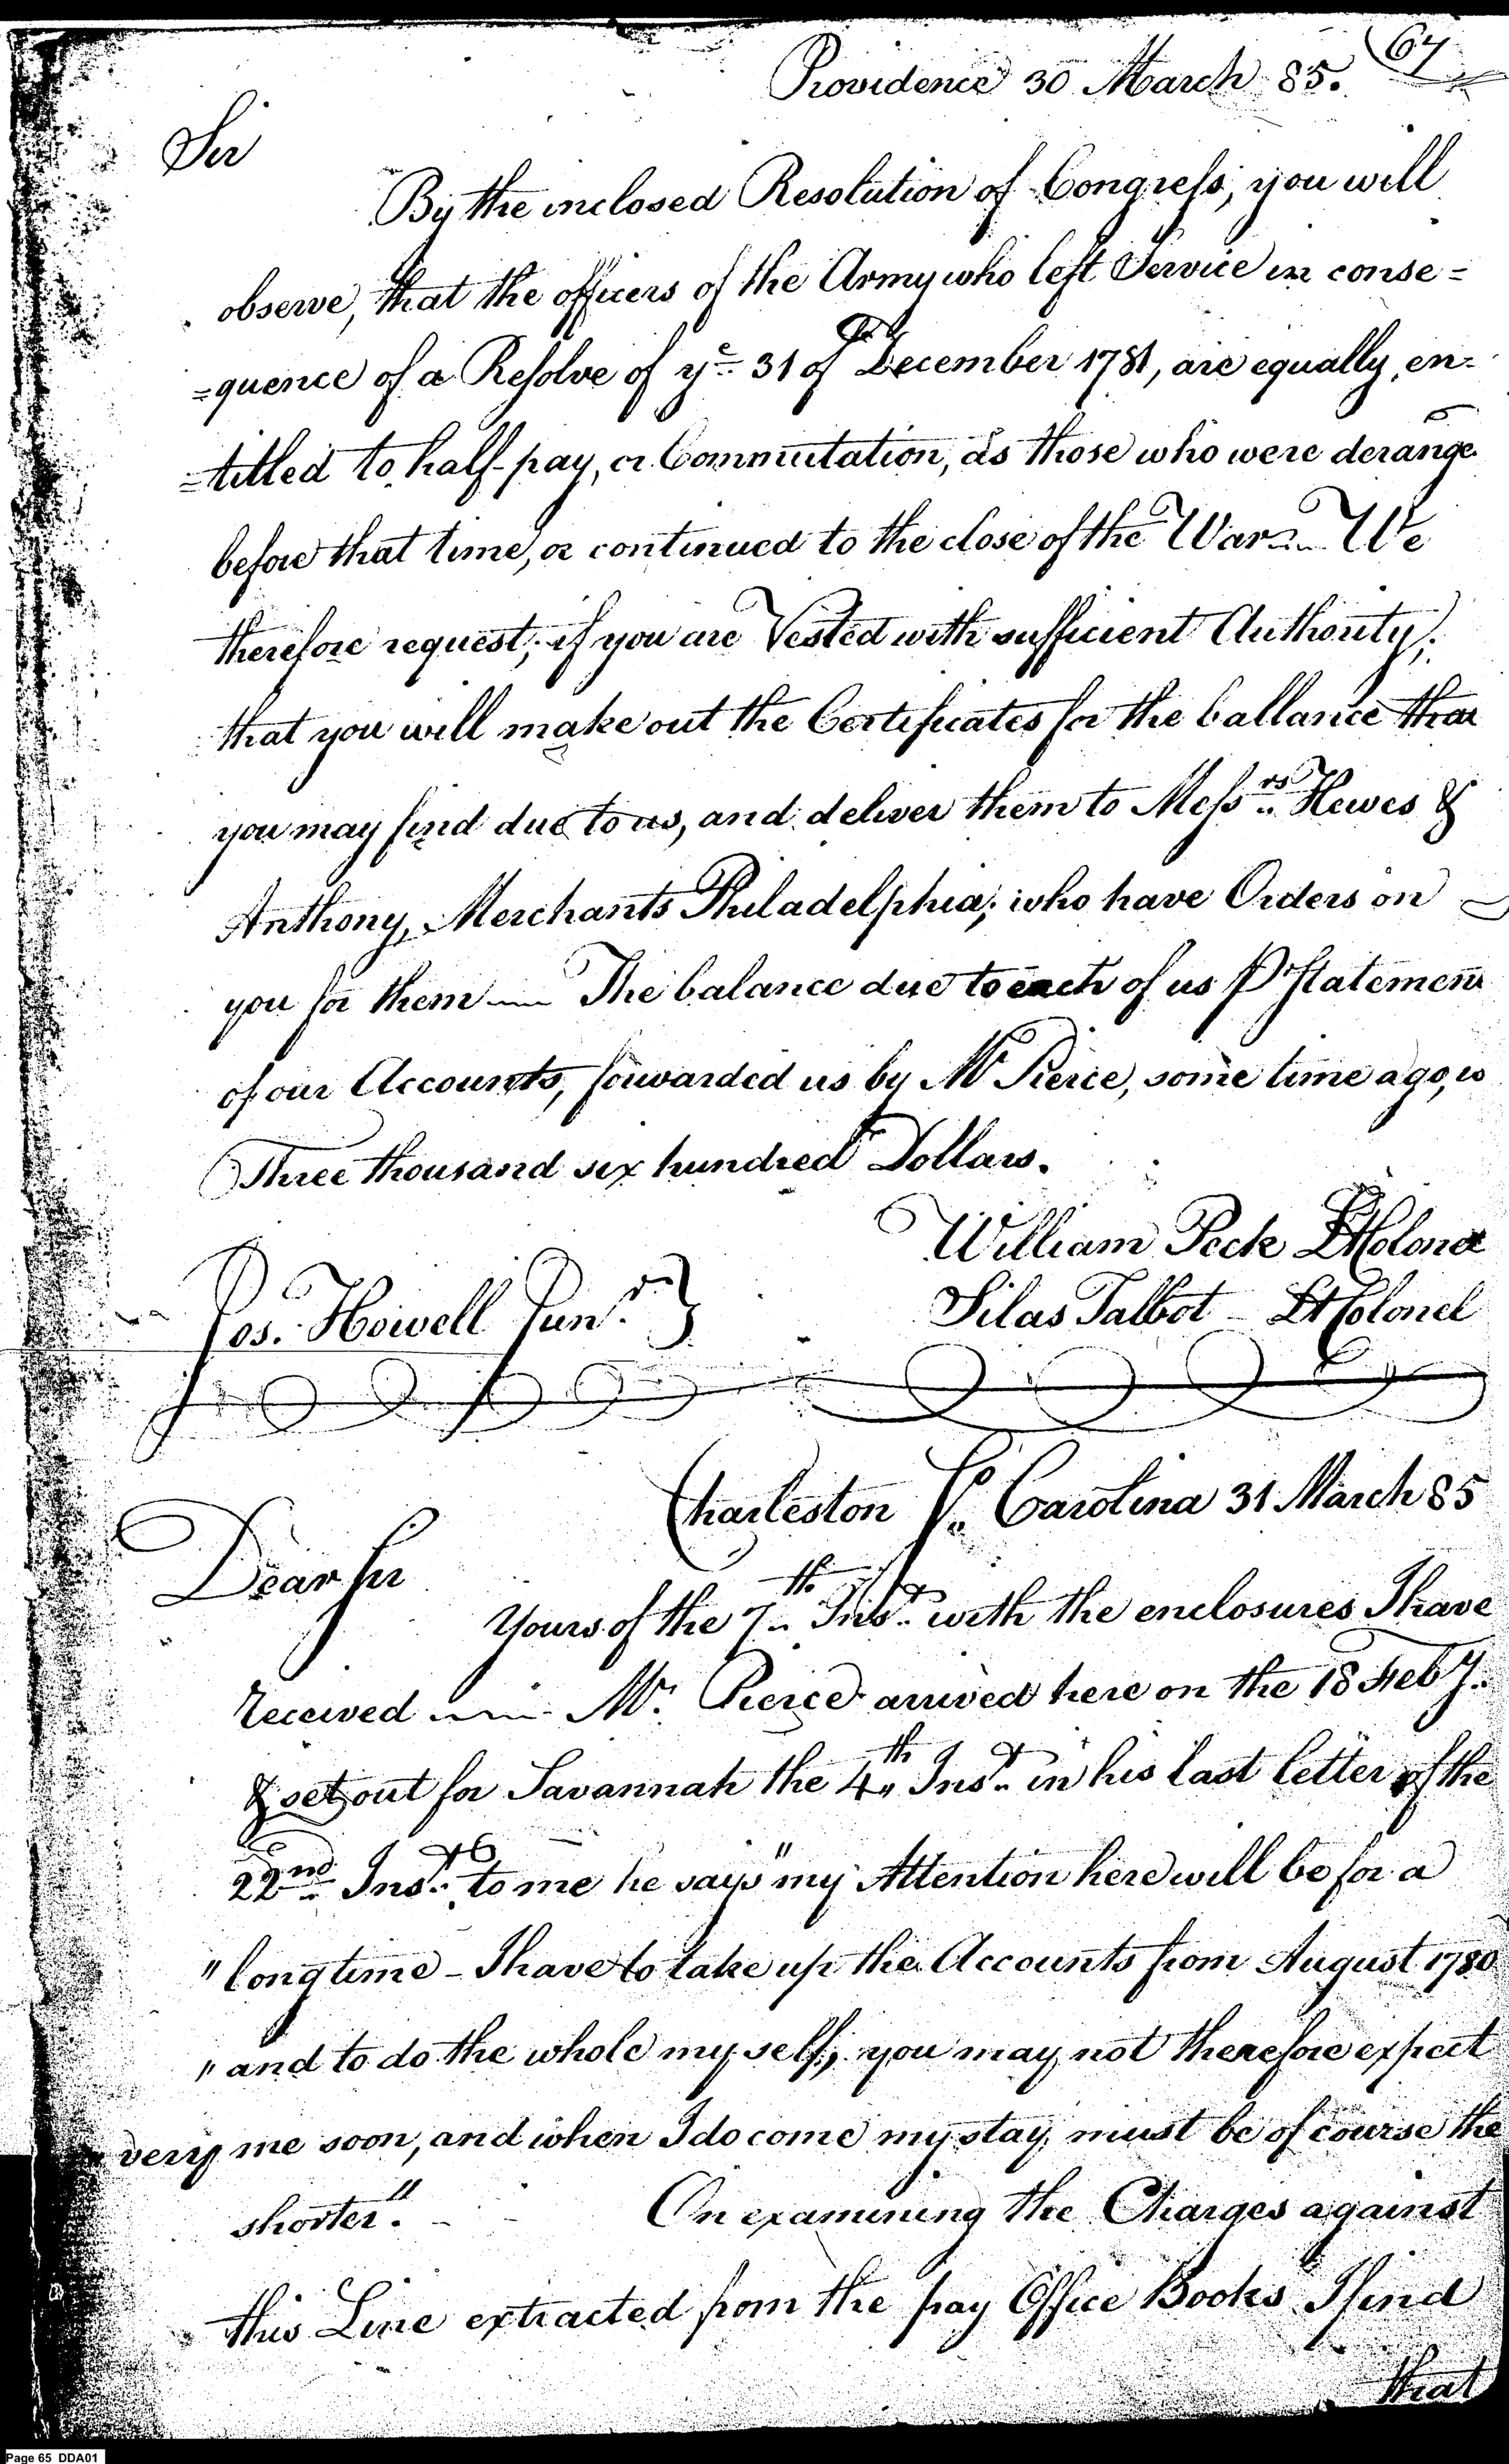 67
Providence 30 March 85.
Sir
By the inclosed Resolution of Congress, you will
observe, that the officers of the Army who left Service in conse=
=quence of a Resolve of ye 31 of December 1781, are equally en=
=titled to half-pay, or Commutation, as those who were derange
before that time, or continued to the close of the War — We
therefore request, if you are Vested with sufficient Authority,
that you will make out the Certificates for the ballance that
you may find due to us, and deliver them to Messrs Hewes &
Anthony, Merchants Philadelphia, who have Orders on
you for them — The balance due to each of us P Statement
of our Accounts, forwarded us by Mr Pierce, some time ago, is
Three thousand six hundred Dollars.
William Peck Lt Colonel
Jos. Howell Junr. }
Silas Talbot - Lt Colonel
Charleston So Carolina 31 March 85
Dear Sir
Yours of the 7th Inst with the enclosures I have
received — Mr. Pierce arrived here on the 18 Feby.
& set out for Savannah the 4th Inst in his last letter of the
22nd Inst. to me he says "my Attention here will be for a
"long time - I have to take up the Accounts from August 1780
"and to do the whole my self, you may not therefore expect
very me soon, and when I do come my stay must be of course the
shorter." - - On examining the Charges against
this Line extracted from the pay Office Books I find
that
Page 65 DDA01